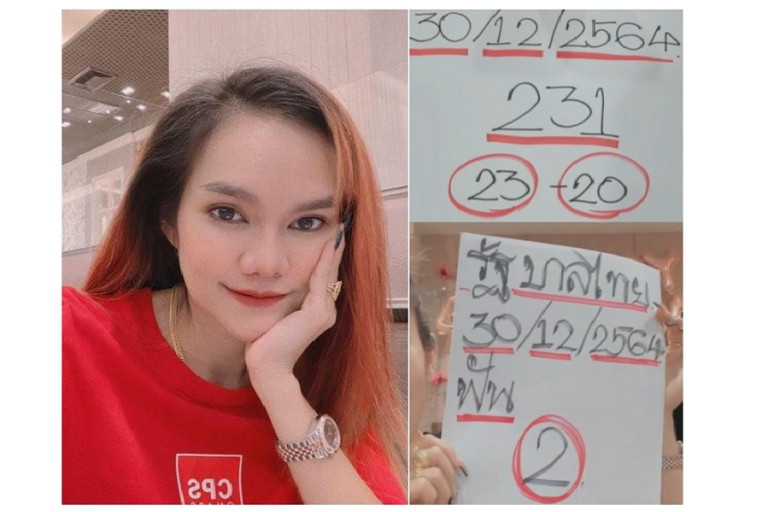 30/12/2564
231
23-20
รัฐบาลไทย
30/12/2564
ฟัน
2
CPS